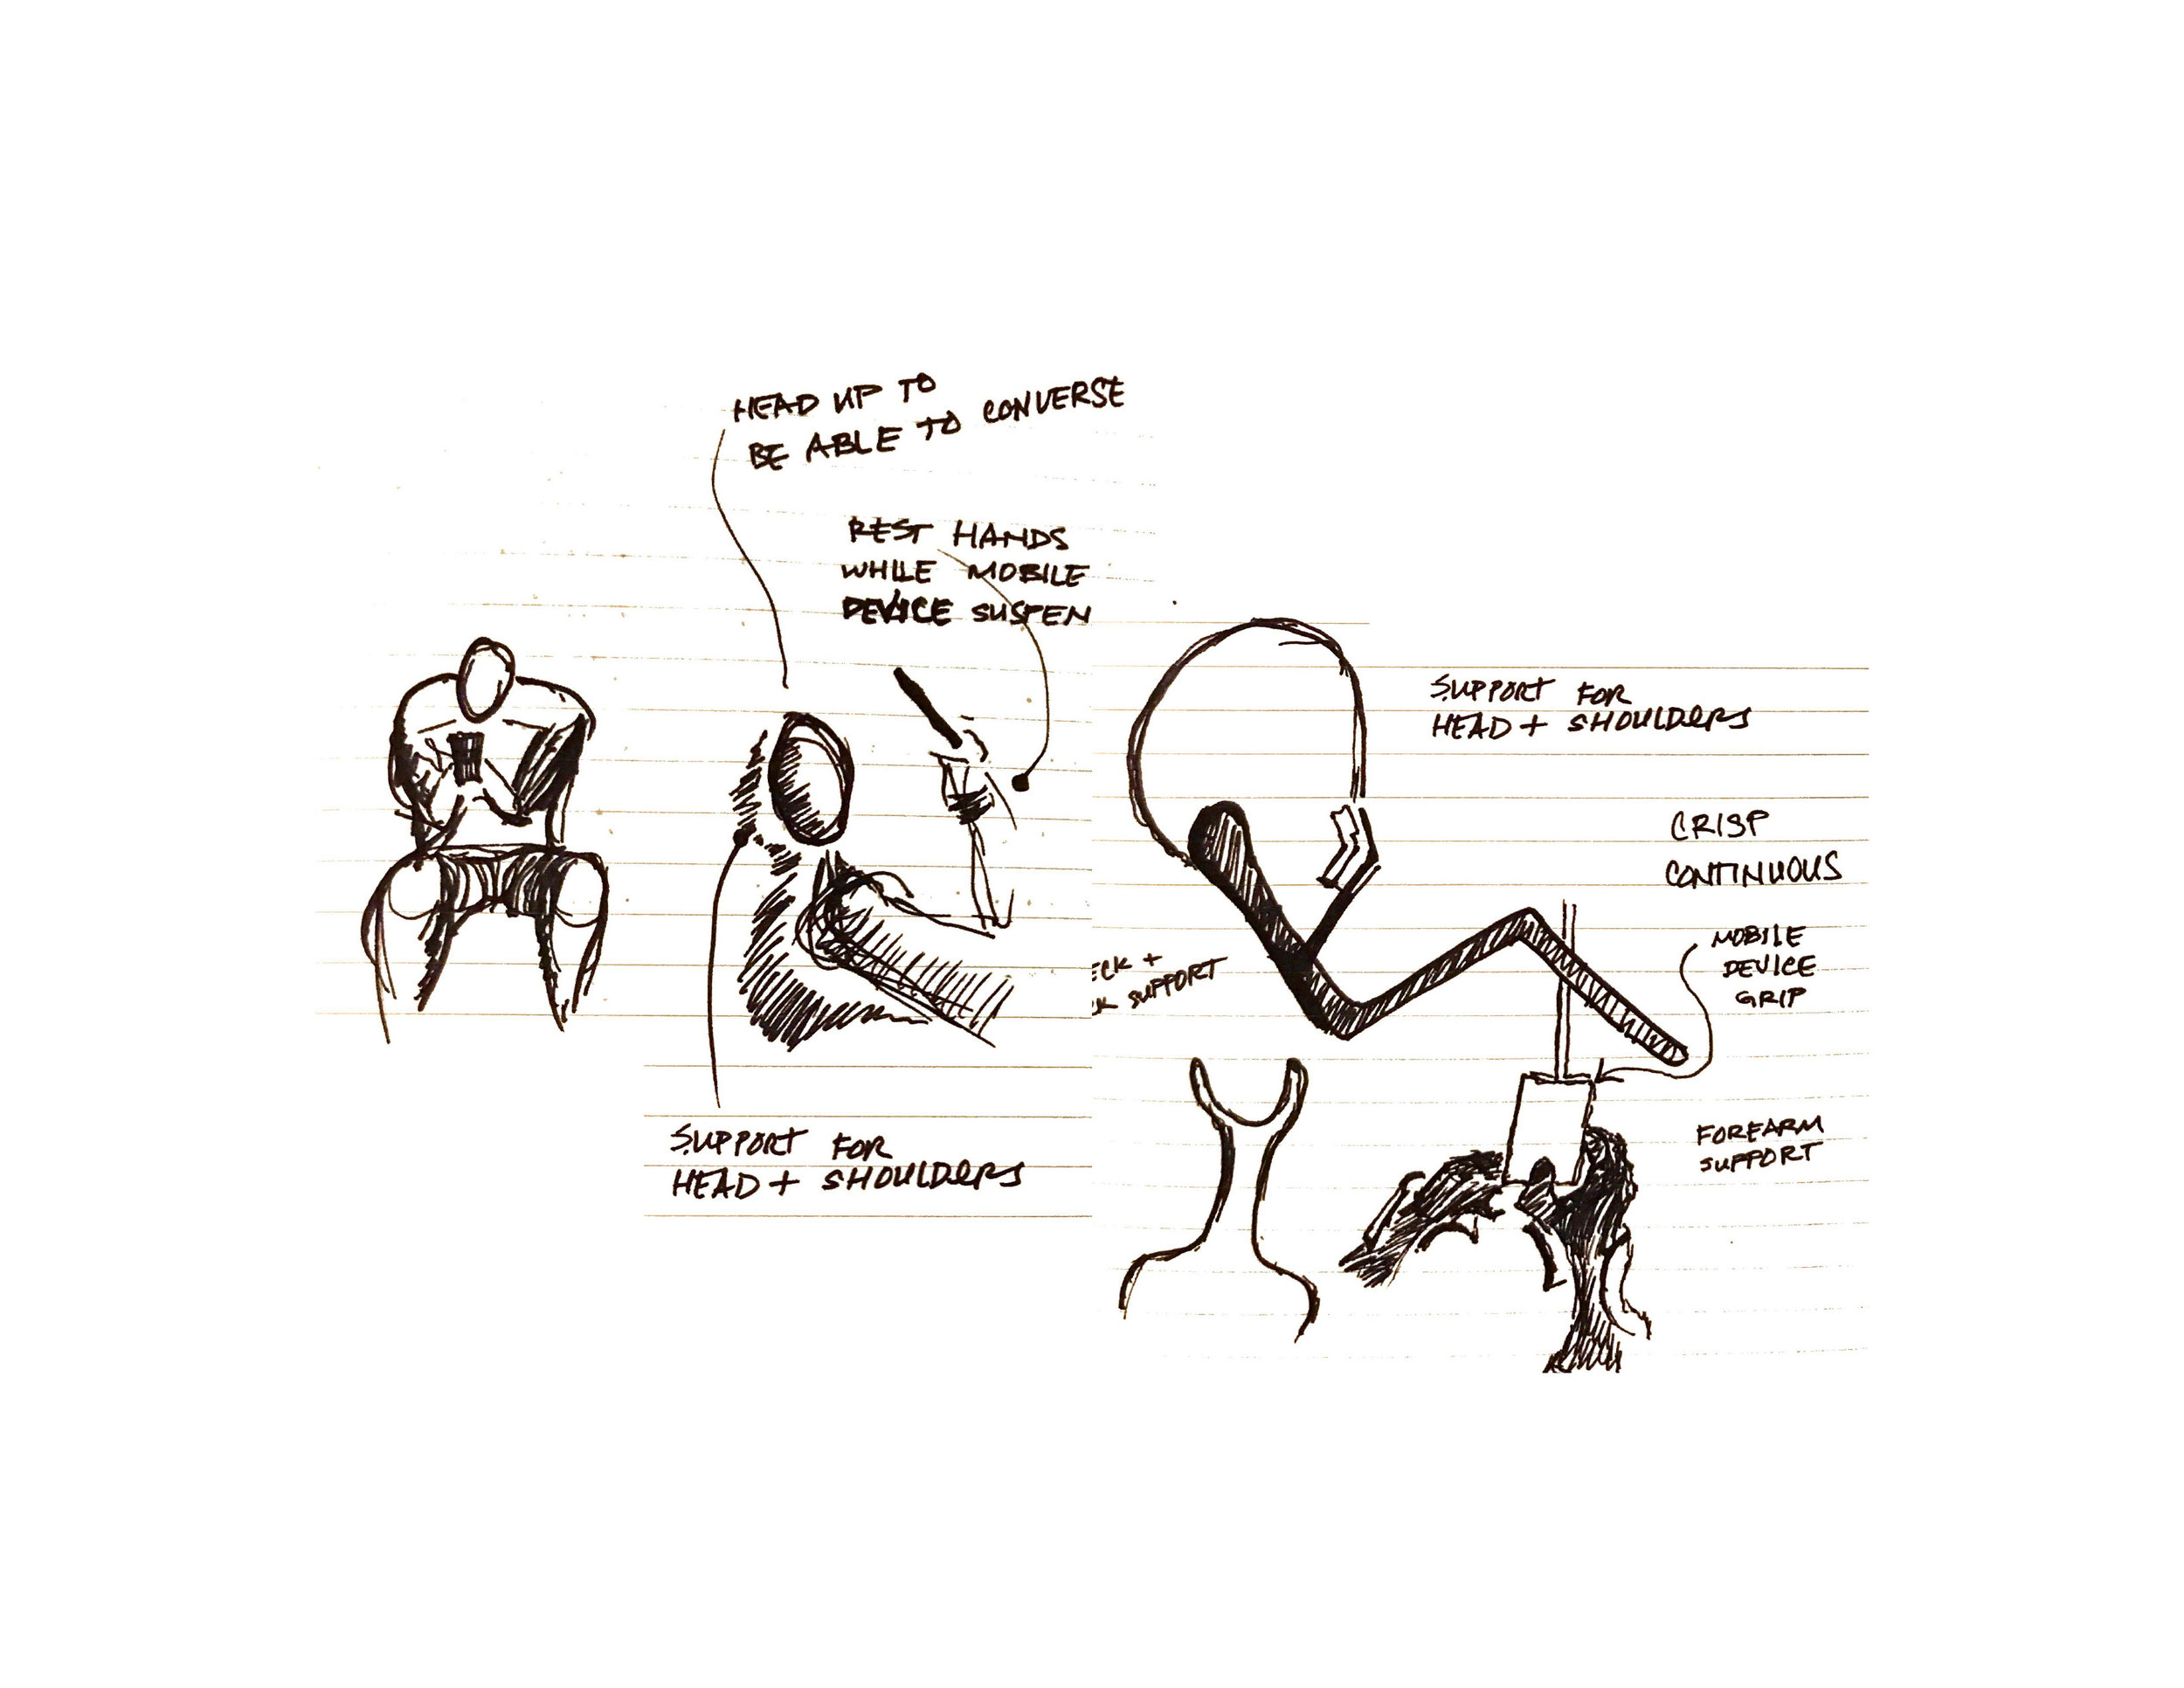 HEAD UP TO
BE ABLE TO CONVERSE
REST HANDS
WHILE MOBILE
DEVICE SUSPEN
SUPPORT FOR
HEAD + SHOULDERS
SUPPORT FOR
HEAD + SHOULDERS
CRISP
CONTINUOUS
MOBILE
DEVICE
GRIP
ECK +
SUPPORT
FOREARM
SUPPORT